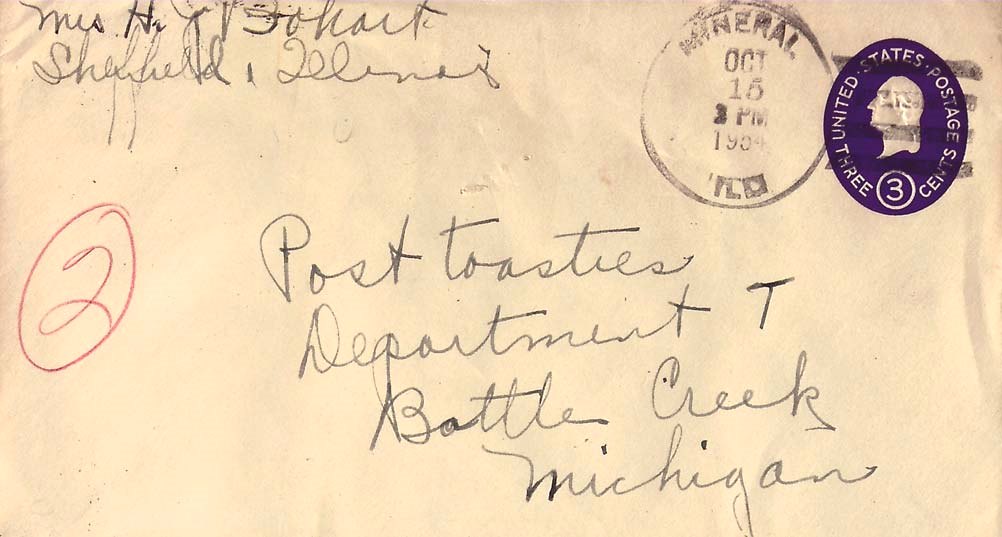 Mrs H.
Sheffield, Illinois
MINERAL
OCT
15
3 PM
1954
ILL
UNITED STATES POSTAGE
THREE 3 CENTS
2
Post toasties
Department T
Battle Creek
Michigan